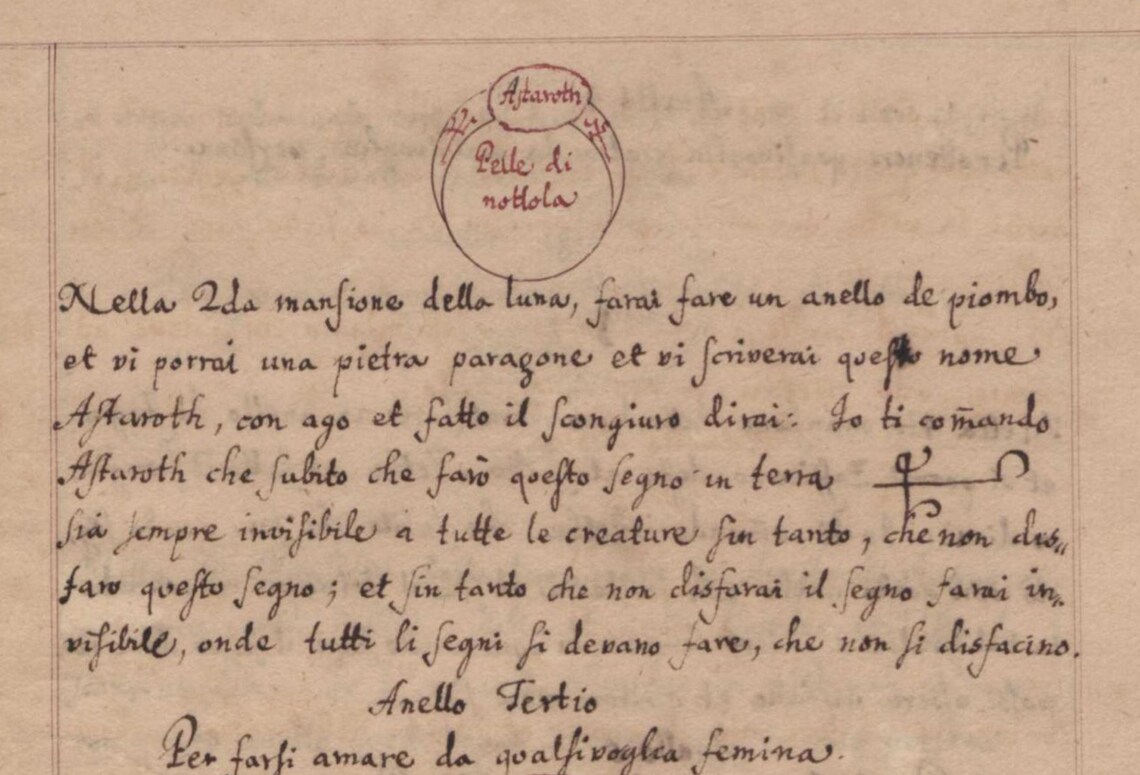 Astaroth
Pelle di
nottola
Nella 2da mansione della luna, farai fare un anello de piombo,
et vi porrai una pietra paragone et vi scriverai questo nome
Astaroth, con ago et fatto il scongiuro dirai: Io ti com̄ando
Astaroth che subito che farò questo segno in terra
sia sempre invisibile a tutte le creature sin tanto, che non dis„
faro questo segno; et sin tanto che non disfarai il segno sarai in„
visibile, onde tutti li segni si devano fare, che non si disfacino.
Anello Tertio
Per farsi amare da qualsivoglia femina.